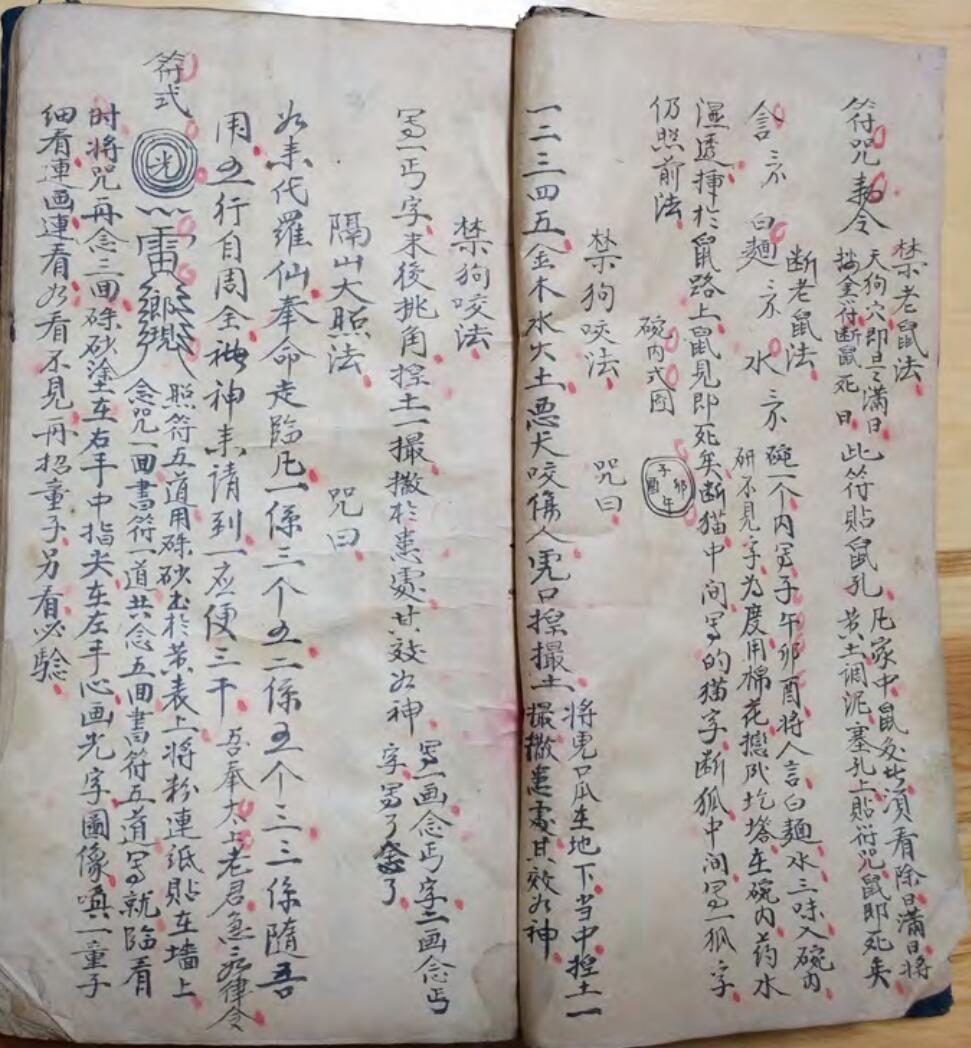 符咒勅令
禁老鼠法
天狗穴即旦之滿日
按金符断鼠死日
此符貼鼠孔
凡家中鼠多出須看除日滿日將
黄土调泥塞孔上貼符咒鼠即死矣
断老鼠法
白麵
水
碗一个内写子午卯酉将人言白麵水三味入碗内
研不見字為度用棉花
圪塔在碗内药水
濕透挿於鼠路上鼠見即死矣断猫中间写的猫字断狐中间写一狐字
仍照前法
碗内式圖
子卯
酉午
禁狗咬法
咒曰
一二三四五金木水火土恶犬咬傷人虎口揑撮土
将虎口爪在地下当中揑土一
撮撒患處其效如神
禁狗咬法
写一丐字末後挑角揑土一撮撒於患處其效如神
写一画念丐字二画念丐
字写了念了
隔山大照法
咒曰
如来代羅仙奉命走臨凡一係三个五二係五个三三係隨吾
用五行自周全
神来請到一应便三千
吾奉太上老君急急如律令
符式
光
雷
照符五道用硃砂书於黄表上将粉連紙貼在墙上
念咒一回書符一道共念五回書符五道写就臨看
时将咒再念三回硃砂塗在右手中指尖在左手心画光字圖像唤一童子
细看連画連看如看不見再招童子另看必驗